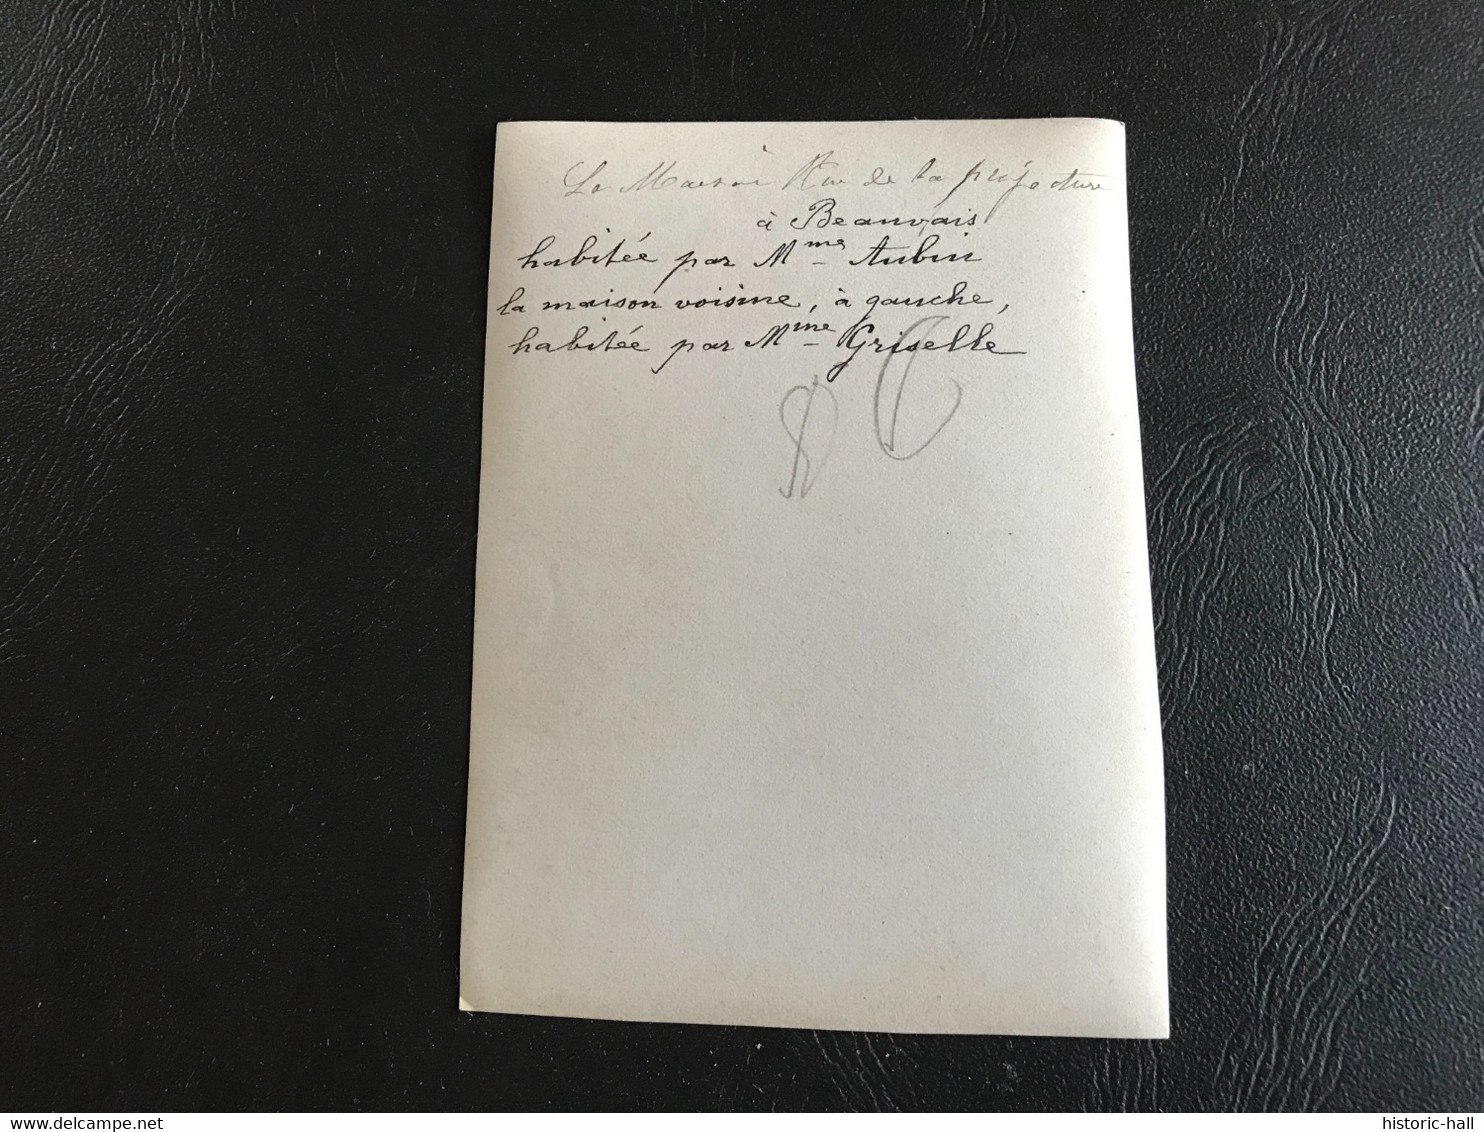 La Maison Rue de la préfecture
à Beauvais
habitée par Mme Aubin
la maison voisine, à gauche,
habitée par Mme Griselle
delcampe.net
historic-hall